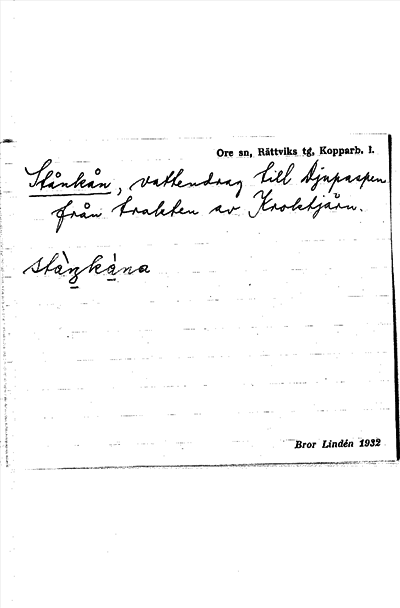 Ore sn, Rättviks tg, Kopparb. l.
Stånkån, vattendrag till Djupaspen
från trakten av Kroktjärn.
Bror Lindén 1932